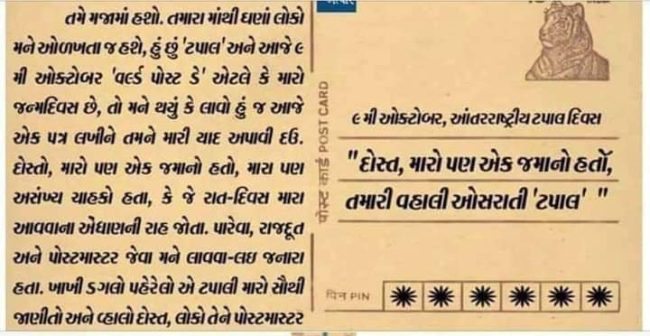 તમે મજામાં હશો. તમારા માંથી ઘણાં લોકો
મને ઓળખતા જ હશે, હું છું 'ટપાલ' અને આજે ૯
મી ઓક્ટોબર 'વર્લ્ડ પોસ્ટ ડે' એટલે કે મારો
જન્મદિવસ છે, તો મને થયું કે લાવો હું જ આજે
એક પત્ર લખીને તમને મારી યાદ અપાવી દઉં.
દોસ્તો, મારો પણ એક જમાનો હતો, મારા પણ
અસંખ્ય ચાહકો હતા, કે જે રાત-દિવસ મારા
આવવાના એંધાણની રાહ જોતા. પારેવા, રાજદૂત
અને પોસ્ટમાસ્ટર જેવા મને લાવવા-લઇ જનારા
હતા. ખાખી ડગલો પહેરેલો એ ટપાલી મારો સૌથી
જાણીતો અને વ્હાલો દોસ્ત, લોકો તેને પોસ્ટમાસ્ટર
पोस्ट कार्ड POST CARD
૯ મી ઓક્ટોબર, આંતરરાષ્ટ્રીય ટપાલ દિવસ
"દોસ્ત, મારો પણ એક જમાનો હતો,
તમારી વહાલી ઓસરાતી 'ટપાલ' "
पिन PIN